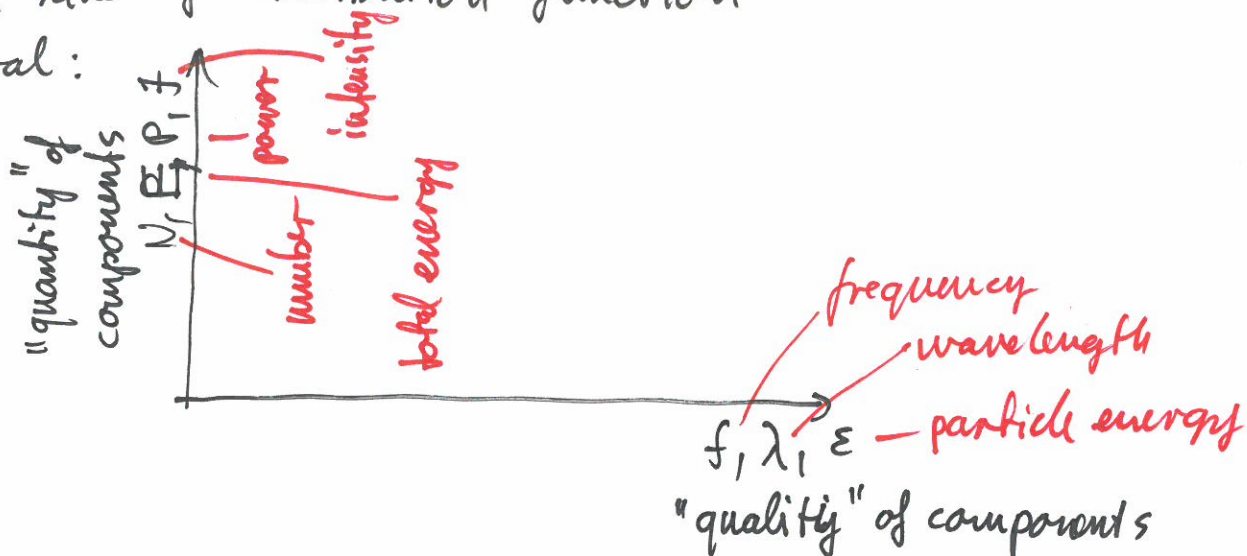 distribution function
al:
"quantity" of
components
N, E, P, J
number
total energy
power
intensity
frequency
wavelength
f, λ, ε — particle energy
"qualitiy" of components